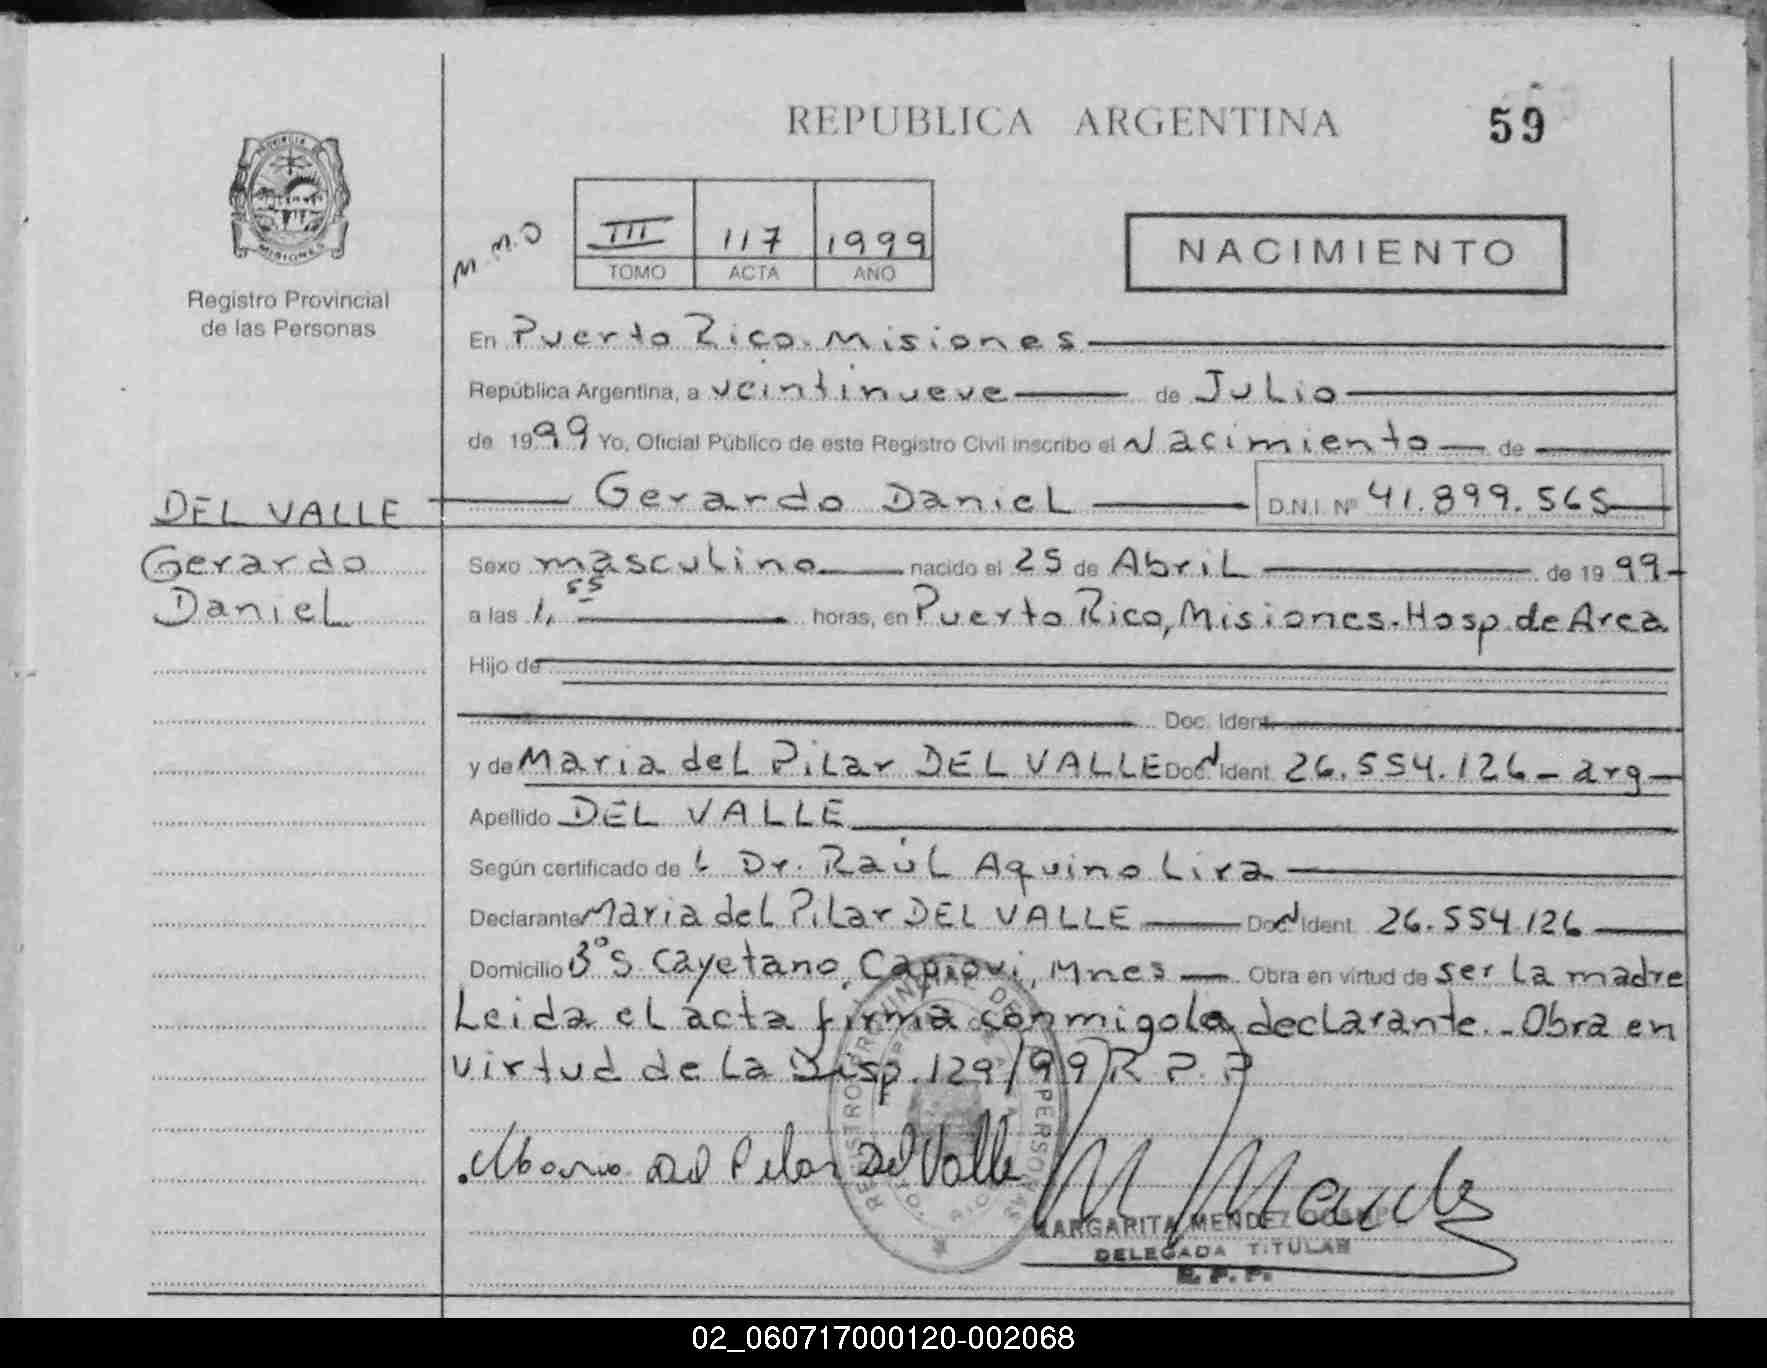 REPUBLICA ARGENTINA
59
PROVINCIA DE
MISIONES
Registro Provincial
de las Personas
M.M.O
III
117
1999
TOMO
ACTA
AÑO
NACIMIENTO
En Puerto Rico. Misiones
República Argentina, a veintinueve de Julio
de 1999 Yo, Oficial Público de este Registro Civil inscribo el Nacimiento de
Gerardo Daniel D.N.I. Nº 41.899.565
DEL VALLE
Gerardo
Daniel
Sexo masculino nacido el 25 de Abril de 19 99
a las 1,55 horas, en Puerto Rico, Misiones. Hosp. de Area
Hijo de
Doc. Ident.
y de Maria del Pilar DEL VALLE Doc. Ident. 26.554.126 - arg
Apellido DEL VALLE
Según certificado de L Dr. Raúl Aquino Lira
Declarante Maria del Pilar DEL VALLE Doc. Ident. 26.554.126
Domicilio Bº S. Cayetano, Capiovi, Mnes Obra en virtud de ser la madre
Leida el acta firma conmigo la declarante. - Obra en
virtud de la Disp. 129/99 R.P.P
Maria Del Pilar Del Valle
M Mendez
MARGARITA MENDEZ OCAMPO
DELEGADA TITULAR
R. P. P.
02_060717000120-002068